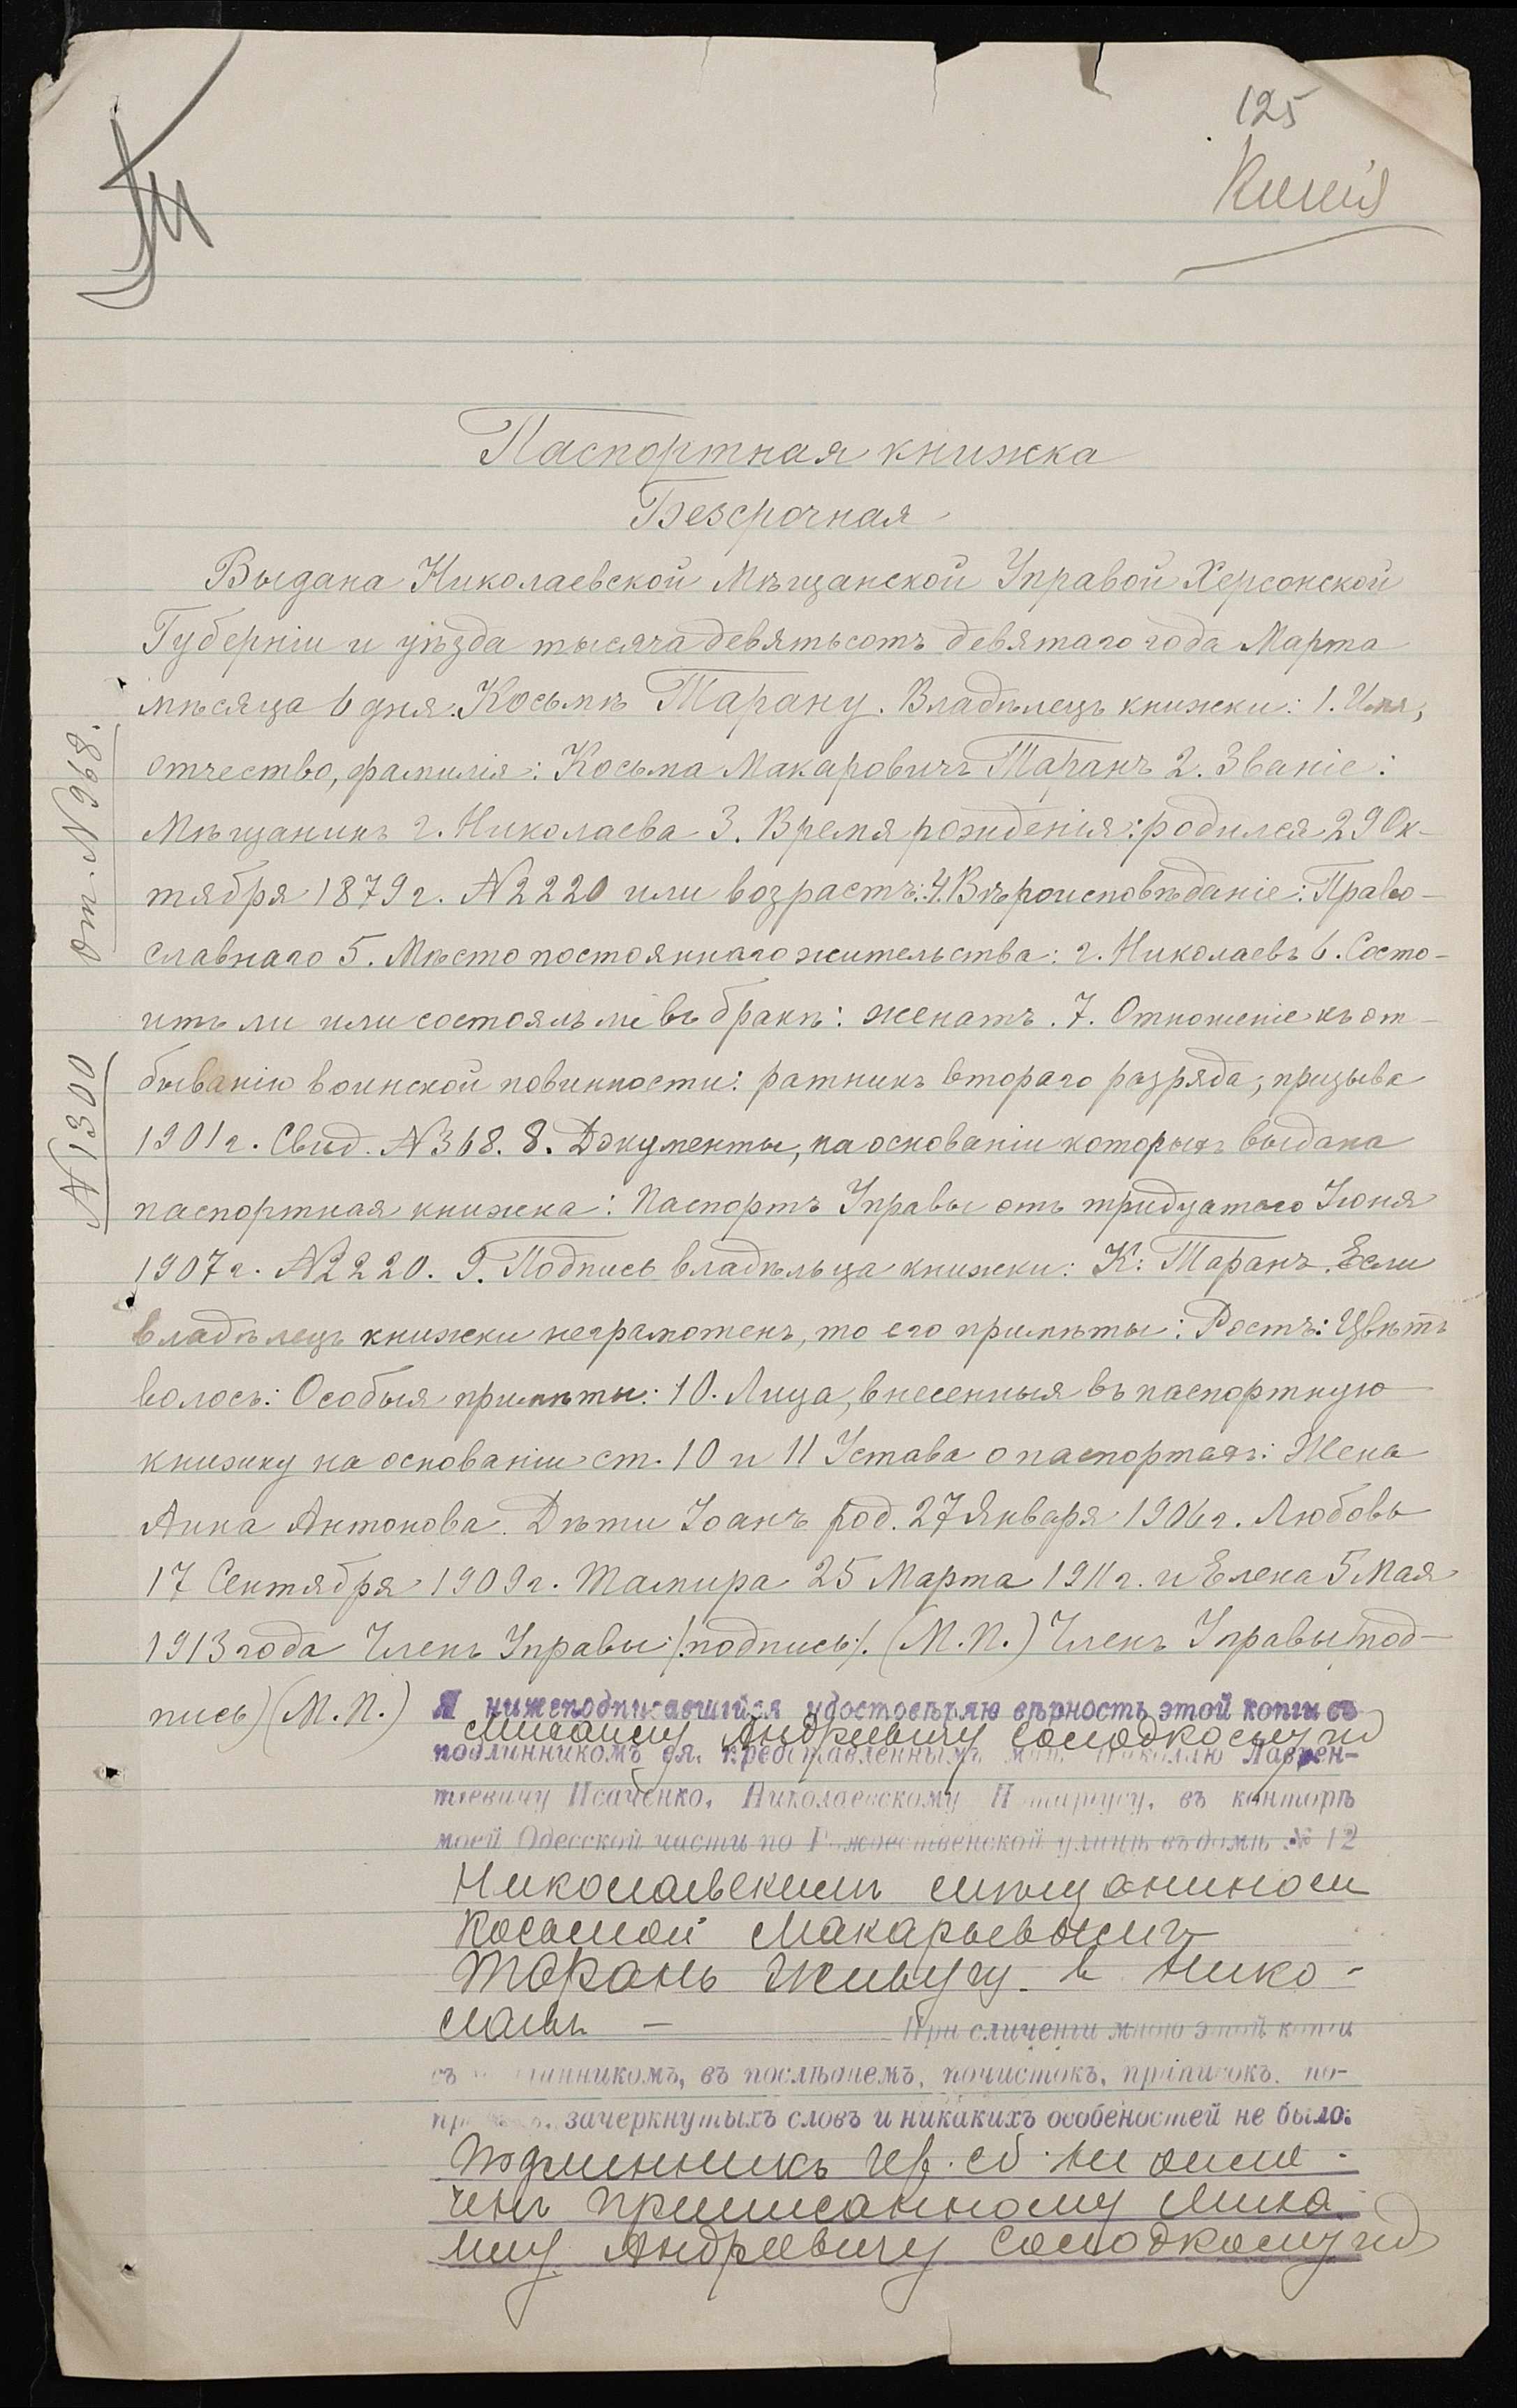 125
Копія
Паспортная книжка
Безсрочная
Выдана Николаевской Мѣщанской Управой Херсонской
Губерніи и уѣзда тысяча девятьсотъ девятаго года Марта
мѣсяца 6 дня. Косьмѣ Тарану. Владѣлецъ книжки: 1. Имя,
отчество, фамилія: Косьма Макаровичъ Таранъ 2. Званіе:
Мѣщанинъ г. Николаева 3. Время рожденія: родился 29 Ок-
тября 1879 г. № 2220 или возрастъ: 4. Вѣроисповѣданіе: Право-
славнаго 5. Мѣсто постояннаго жительства: г. Николаевъ 6. Состо-
итъ ли или состоялъ ли въ бракѣ: женатъ. 7. Отношеніе къ от-
быванію воинской повинности: ратникъ второго разряда, призыва
1901 г. Свид. № 368. 8. Документы, на основаніи которыхъ выдана
паспортная книжка: Паспортъ Управы отъ тридцатого Іюня
1907 г. № 2220. 9. Подпись владѣльца книжки: К. Таранъ. Если
владѣлецъ книжки неграмотенъ, то его примѣты: Ростъ: Цвѣтъ
волосъ: Особыя примѣты: 10. Лица, внесенныя въ паспортную
книжку на основаніи ст. 10 и 11 Устава о паспортахъ: Жена
Анна Антонова. Дѣти Іоанъ род. 27 Января 1906 г. Любовь
17 Сентября 1909 г. Тамира 25 Марта 1911 г. и Елена 5 Мая
1913 года Членъ Управы /:подпись:/. (М.П.) Членъ Управы /под-
пись) (М.П.)
Я нижеподписавшійся удостовѣряю вѣрность этой копіи съ
Андреевичу Солодкому
подлинникомъ ея, представленнымъ мнѣ, Николаю Лаврен-
тіевичу Исаченко, Николаевскому Нотаріусу, въ конторѣ
моей Одесской части по Рождественской улицѣ въ домѣ № 12
Николаевскимъ мѣщаниномъ
Косьмой Макарьевичемъ
Таранъ живущ. в Нико-
лаевѣ — При сличеніи мною этой копіи
съ подлинникомъ, въ послѣднемъ, почистокъ, приписокъ, по-
правокъ, зачеркнутыхъ словъ и никакихъ особеностей не было:
Подлинникъ гер. сб. не опла-
ченъ приписанному
Андреевичу Солодкому
от. № 968.
№ 1300